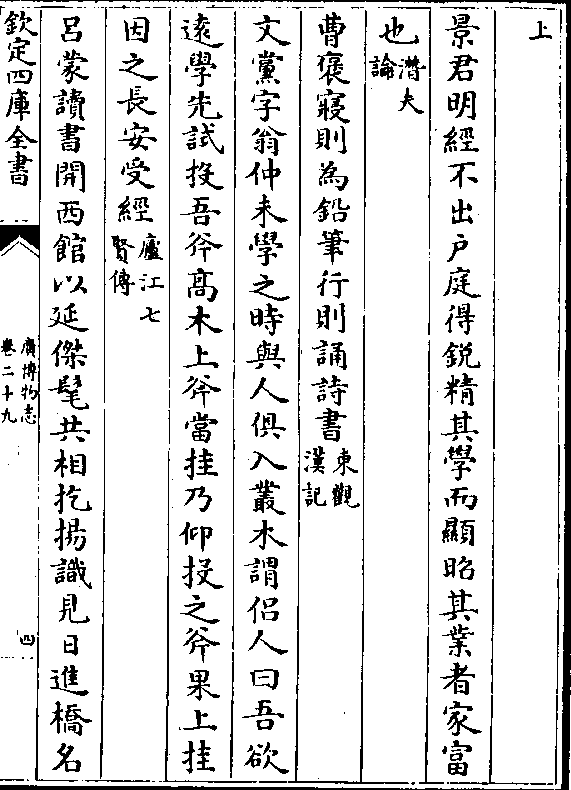 上
景君明經不出户庭得鋭精其學而顯昭其業者家富
也潛夫論
曹褒寢則為鉛筆行則誦詩書東觀漢記
文黨字翁仲未學之時與人俱入叢木謂侣人曰吾欲
逺學先試投吾斧髙木上斧當挂乃仰投之斧果上挂
因之長安受經廬江七賢傳
吕蒙讀書開西館以延傑髦共相扢揚識見日進橋名
欽定四庫全書
廣博物志
卷二十九
四